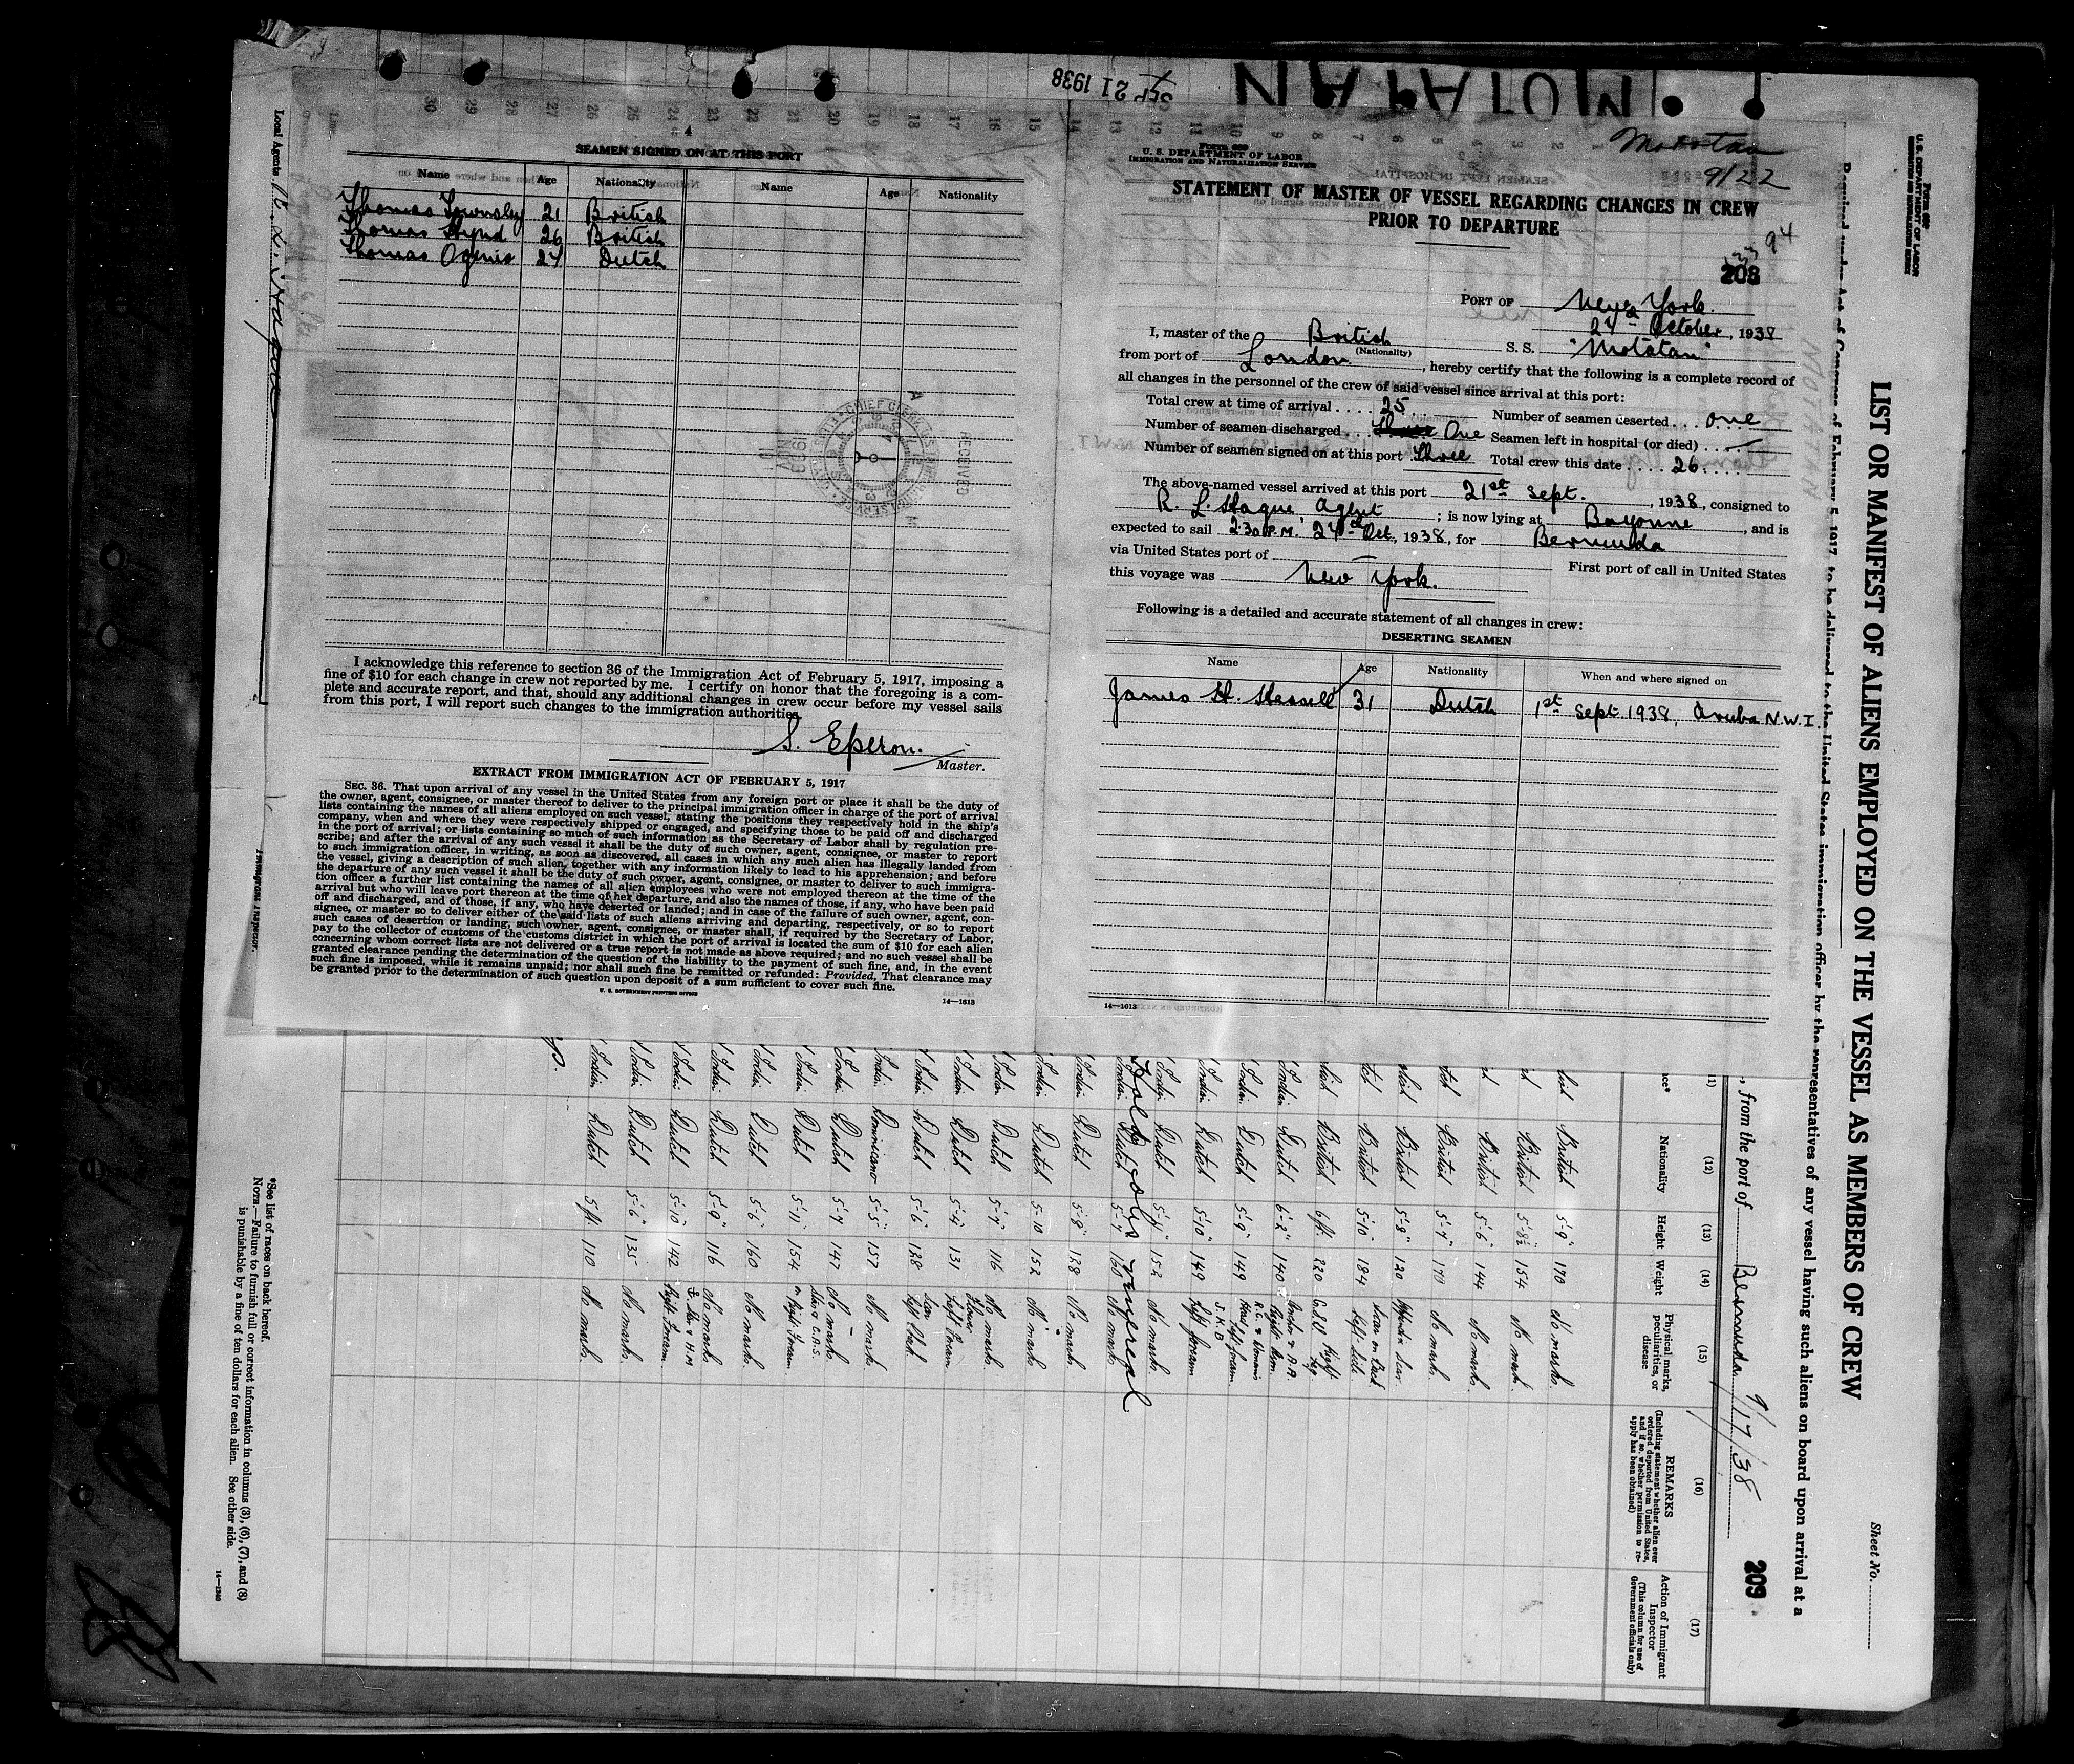 SEP 21 1938
MOTATAN
4
SEAMEN SIGNED ON AT THIS PORT
Name Age Nationality Name Age Nationality
Thomas Townsley 21 British
Thomas Hynd 26 British
Thomas Ogenio 24 Dutch
RECEIVED
NOV 10 1938
I acknowledge this reference to section 36 of the Immigration Act of February 5, 1917, imposing a
fine of $10 for each change in crew not reported by me. I certify on honor that the foregoing is a com-
plete and accurate report, and that, should any additional changes in crew occur before my vessel sails
from this port, I will report such changes to the immigration authorities.
S. Eperon.
Master.
EXTRACT FROM IMMIGRATION ACT OF FEBRUARY 5, 1917
SEC. 36. That upon arrival of any vessel in the United States from any foreign port or place it shall be the duty of
the owner, agent, consignee, or master thereof to deliver to the principal immigration officer in charge of the port of arrival
lists containing the names of all aliens employed on such vessel, stating the positions they respectively hold in the ship's
company, when and where they were respectively shipped or engaged, and specifying those to be paid off and discharged
in the port of arrival; or lists containing so much of such information as the Secretary of Labor shall by regulation pre-
scribe; and after the arrival of any such vessel it shall be the duty of such owner, agent, consignee, or master to report
to such immigration officer, in writing, as soon as discovered, all cases in which any such alien has illegally landed from
the vessel, giving a description of such alien, together with any information likely to lead to his apprehension; and before
the departure of any such vessel it shall be the duty of such owner, agent, consignee, or master to deliver to such immigra-
tion officer a further list containing the names of all alien employees who were not employed thereon at the time of the
arrival but who will leave port thereon at the time of her departure, and also the names of those, if any, who have been paid
off and discharged, and of those, if any, who have deserted or landed; and in case of the failure of such owner, agent, con-
signee, or master so to deliver either of the said lists of such aliens arriving and departing, respectively, or so to report
such cases of desertion or landing, such owner, agent, consignee, or master shall, if required by the Secretary of Labor,
pay to the collector of customs of the customs district in which the port of arrival is located the sum of $10 for each alien
concerning whom correct lists are not delivered or a true report is not made as above required; and no such vessel shall be
granted clearance pending the determination of the question of the liability to the payment of such fine, and, in the event
such fine is imposed, while it remains unpaid; nor shall such fine be remitted or refunded: Provided, That clearance may
be granted prior to the determination of such question upon deposit of a sum sufficient to cover such fine.
U. S. GOVERNMENT PRINTING OFFICE
14—1613
Motatan
9/22
Form 689
U. S. DEPARTMENT OF LABOR
IMMIGRATION AND NATURALIZATION SERVICE
STATEMENT OF MASTER OF VESSEL REGARDING CHANGES IN CREW
PRIOR TO DEPARTURE
94
208
PORT OF New York.
24 October, 1938
I, master of the British S. S. "Motatan"
(Nationality)
from port of London, hereby certify that the following is a complete record of
all changes in the personnel of the crew of said vessel since arrival at this port:
Total crew at time of arrival .... 25 Number of seamen deserted ... one
Number of seamen discharged ... One Seamen left in hospital (or died) ... —
Number of seamen signed on at this port Three Total crew this date .... 26
The above-named vessel arrived at this port 21st Sept., 1938, consigned to
R. L. Hague Agent; is now lying at Bayonne, and is
expected to sail 2.30 P.M. 24 Oct, 1938, for Bermuda
via United States port of — First port of call in United States
this voyage was New York.
Following is a detailed and accurate statement of all changes in crew:
DESERTING SEAMEN
Name Age Nationality When and where signed on
James H. Hassell 31 Dutch 1st Sept 1938, Aruba N.W.I.
14—1613
U.S. DEPARTMENT OF LABOR
Sheet No.
LIST OR MANIFEST OF ALIENS EMPLOYED ON THE VESSEL AS MEMBERS OF CREW
Required under Act of Congress of February 5, 1917, to be delivered to the United States immigration officer by the representatives of any vessel having such aliens on board upon arrival at a
, from the port of Bermuda 9/17/38
209
(11) (12) (13) (14) (15) (16) (17)
Nationality Height Weight Physical marks, peculiarities, or disease REMARKS (Including statement whether alien ever ordered deported from United States, and if so, whether permission to re-apply has been obtained) Action of Immigrant Inspector (This column for use of Government officials only)
British 5-9" 170 No marks.
British 5-8½ 154 No mark.
British 5-6" 144 No marks.
British 5-7" No mark.
British 5-8" 120
British 5-10" 184
British 6ft. 220
Dutch 6-2" 140
Dutch 5-9" 149
Dutch 5-10" 149 Left forearm
Dutch 5-11" 152 No marks.
Dutch 5-7 160 No marks
Dutch 5-8" 128 No marks
Dutch 5-10 152 No marks
Dutch 5-7" 116 No marks.
Dutch 5-4" 131 Left Forearm
Dutch 5-6" 128
Dominicano 5-5" 157 No mark.
Dutch 5-7 147 No marks.
Dutch 5-11" 154 Right Forearm
Dutch 5-6" 160 No marks.
Dutch 5-9" 116 No marks
Dutch 5-10" 142 Right Forearm
Dutch 5-6" 135 No marks.
Dutch 5ft 110 No marks.
venereal
Local Agents R. L. Hague
Immigrant Inspector.
*See list of races on back hereof.
NOTE.—Failure to furnish full or correct information in columns (3), (6), (7), and (8)
is punishable by a fine of ten dollars for each alien. See other side.
14—1240